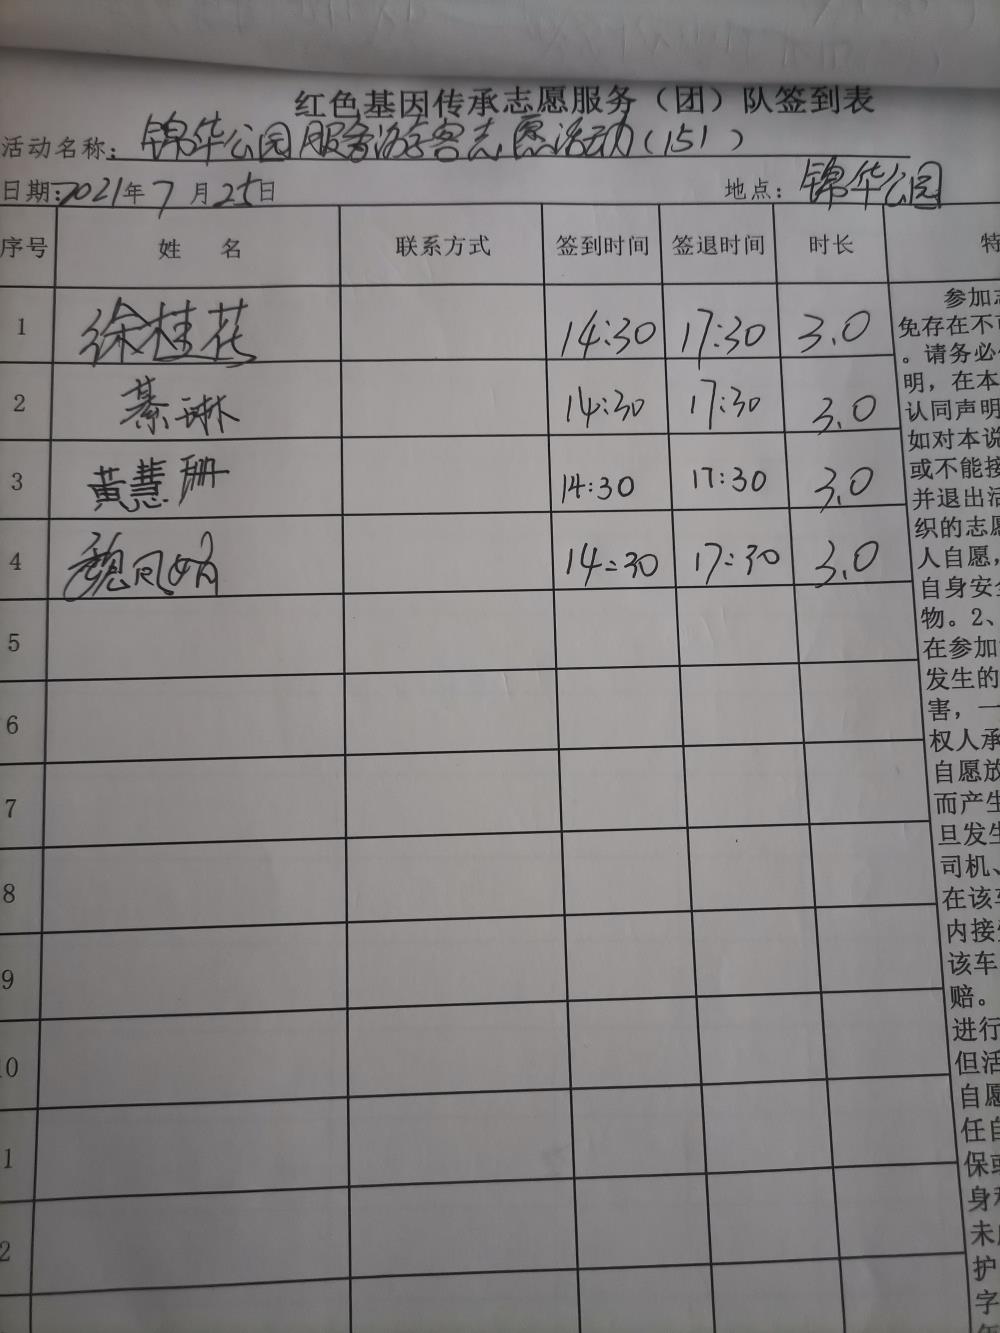 红色基因传承志愿服务（团）队签到表
活动名称：锦华公园服务游客志愿活动（151）
日期：2021年7月25日 地点：锦华公园
序号 姓 名 联系方式 签到时间 签退时间 时长 特
1 徐桂花 14:30 17:30 3.0
2 綦琳 14:30 17:30 3.0
3 黄慧珊 14:30 17:30 3.0
4 魏凤 14:30 17:30 3.0
5
6
7
8
9
10
1
2
参加志
免存在不可
。请务必
明，在本
认同声明
如对本说
或不能接
并退出活
织的志愿
人自愿，
自身安全
物。2、
在参加
发生的
害，一
权人承
自愿放
而产生
旦发生
司机、
在该车
内接
该车
赔。
进行
但活
自愿
任自
保或
身和
未
护
字